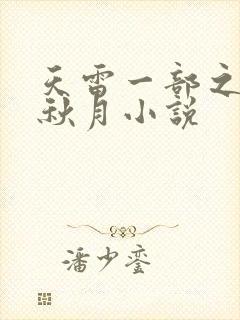 天雷一部之
秋月小说
潘少銮